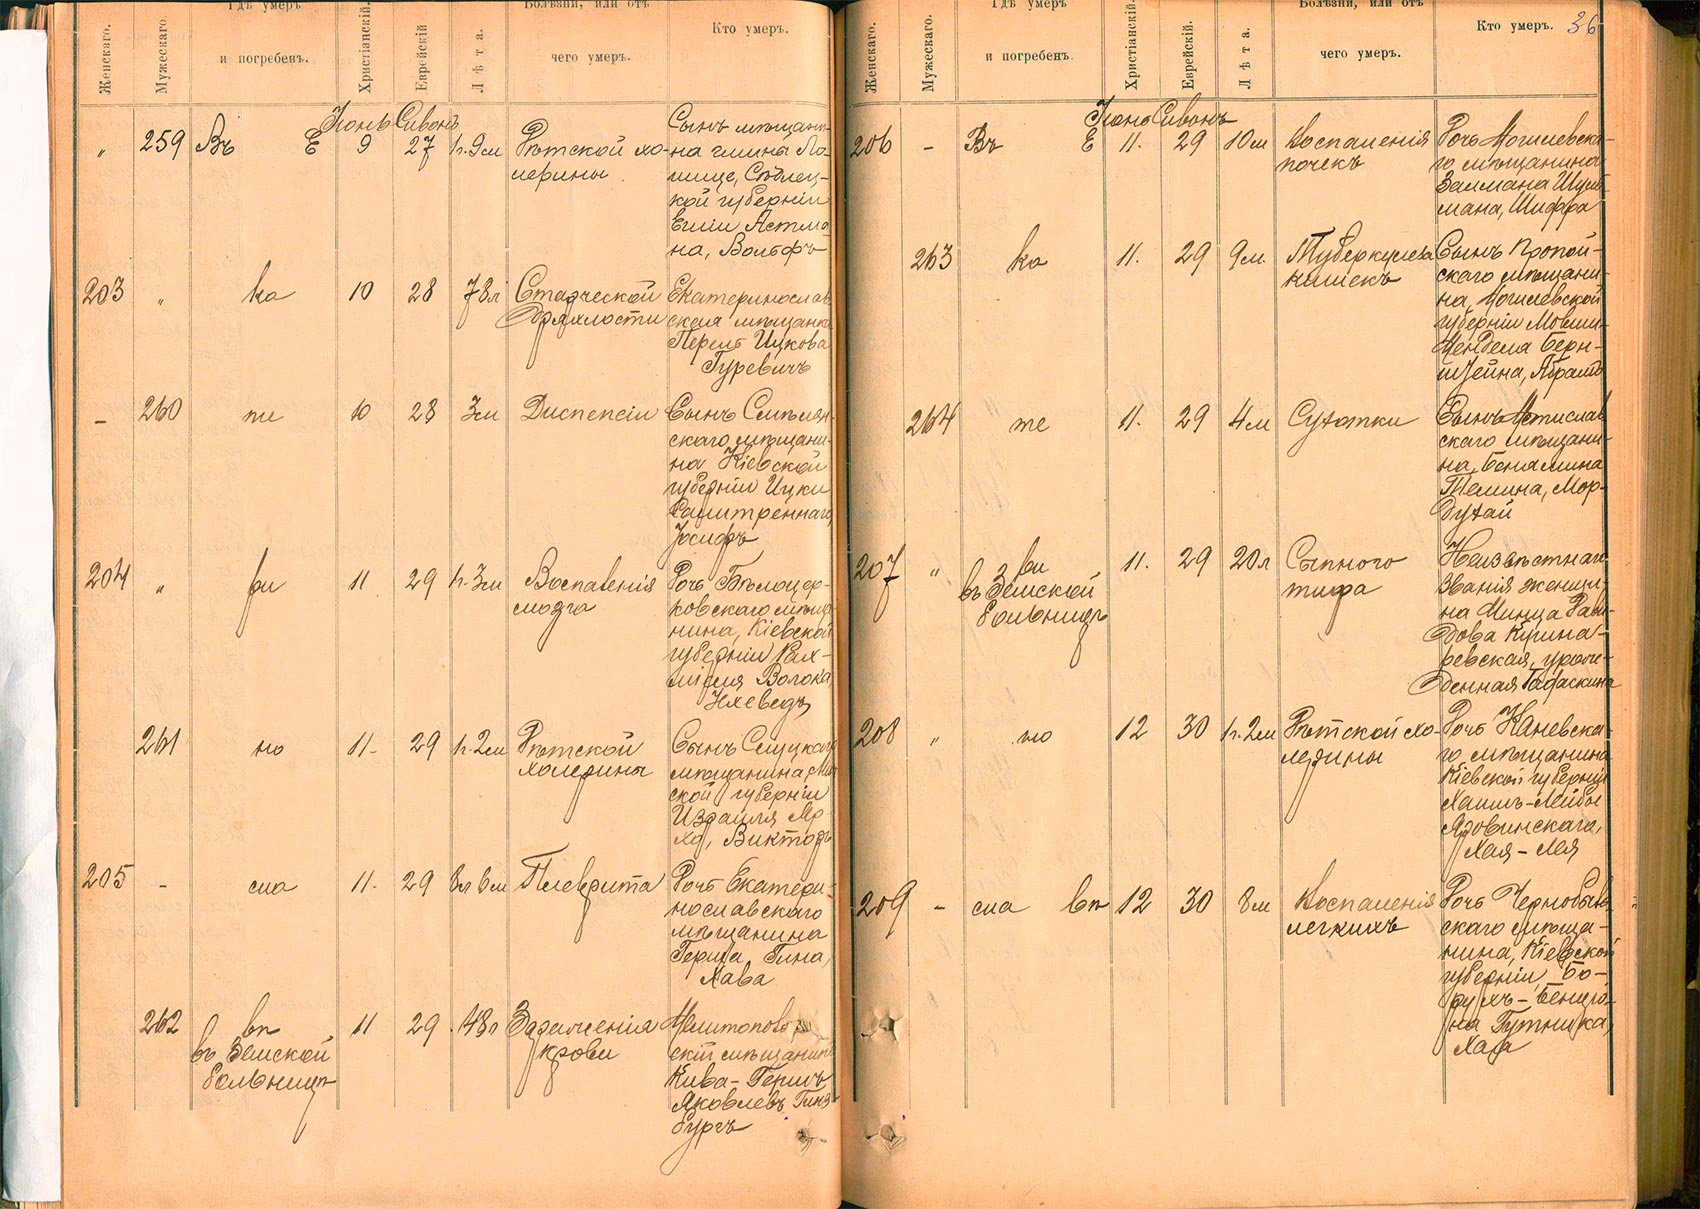 Женскаго.
Мужескаго.
Гдѣ умеръ
и погребенъ.
Христіанскій.
Еврейскій
Лѣта.
Болѣзни, или отъ
чего умеръ.
Кто умеръ.
Іюнь Сивонъ
„ 259 Въ Е 9 27 1г. 9м Дѣтской хо-
лерины
Сынъ мѣщани-
на гмина Ло-
мице, Сѣдлец-
кой губерніи
Еліи Астма
на, Вольфъ
203 „ ка 10 28 78л Старческой
дряхлости
Екатеринослав
ская мѣщанка
Перлъ Ицкова
Гуревичъ
– 260 те 10 28 3м Диспепсіи
Сынъ Смѣлян-
скаго мѣщани-
на Кіевской
губерніи Ицки
Салитреннаго,
Іосифъ
204 „ ри 11 29 1г. 3м Воспаленія
мозга
Дочь Бѣлоцер-
ковскаго мѣща
нина, Кіевской
губерніи Рах-
міеля Волоха,
Ихеведъ
261 но 11 29 1г. 2м Дѣтской
холерины
Сынъ Слуцкаго
мѣщанина Мин
ской губерніи
Израиля Яр
хо, Викторъ
205 – сла 11 29 8л 6м Плеврита
Дочь Екатери-
нославскаго
мѣщанина
Герша Гина,
Хава
262 вп 11 29 48л Зараженія
крови
въ Земской
больницѣ
Мелитополь
скій мѣщанинъ
Кива-Гершъ
Яковлевъ Гинз
бургъ
Женскаго.
Мужескаго.
Гдѣ умеръ
и погребенъ.
Христіанскій.
Еврейскій.
Лѣта.
Болѣзни, или отъ
чего умеръ.
Кто умеръ. 36
Іюнь Сивонъ
206 – Въ Е 11. 29 10м Воспаленія
почекъ
Дочь Могилевска-
го мѣщанина
Залмана Шуль
мана, Шифра
263 ка 11. 29 9м. Туберкулеза
кишекъ
Сынъ Пропой-
скаго мѣщани-
на, Могилевской
губерніи Мовши-
Менделя Берн-
штейна, Абрамъ
264 те 11. 29 4м Сухотки
Сынъ Мстислав
скаго мѣщани-
на, Беньямина
Темина, Мор-
духай
207 „ ри 11. 29 20л Сыпного
тифа
въ Земской
больницѣ
Неизвѣстнаго
званія женщи-
на Минца Рафи-
дова Кушна-
ревская, урож-
денная Гараскина
208 „ но 12 30 1г. 2м Дѣтской хо-
лерины
Дочь Каневска-
го мѣщанина
Кіевской губерніи
Хаимъ-Лейбы
Яровинскаго,
Хая-Лея
209 – сла вп 12 30 8м Воспаленія
легкихъ
Дочь Чернобыль
скаго мѣща-
нина, Кіевской
губерніи, Бо-
рухъ-Бенціо-
на Гутника,
Хая